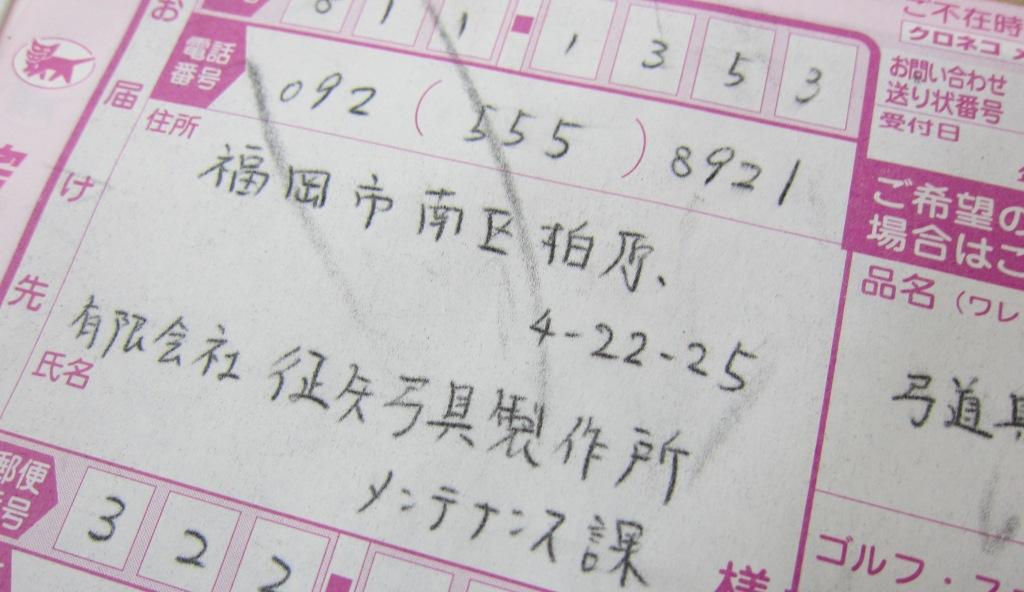 お届け先
811-1353
電話番号
092(555)8921
住所
福岡市南区柏原、
4-22-25
有限会社 征矢弓具製作所
氏名
メンテナンス課
様
郵便
号
322
ご不在時
クロネコ
お問い合わせ
送り状番号
受付日
ご希望の
場合は
品名(ワレ
弓道具
ゴルフ・ス